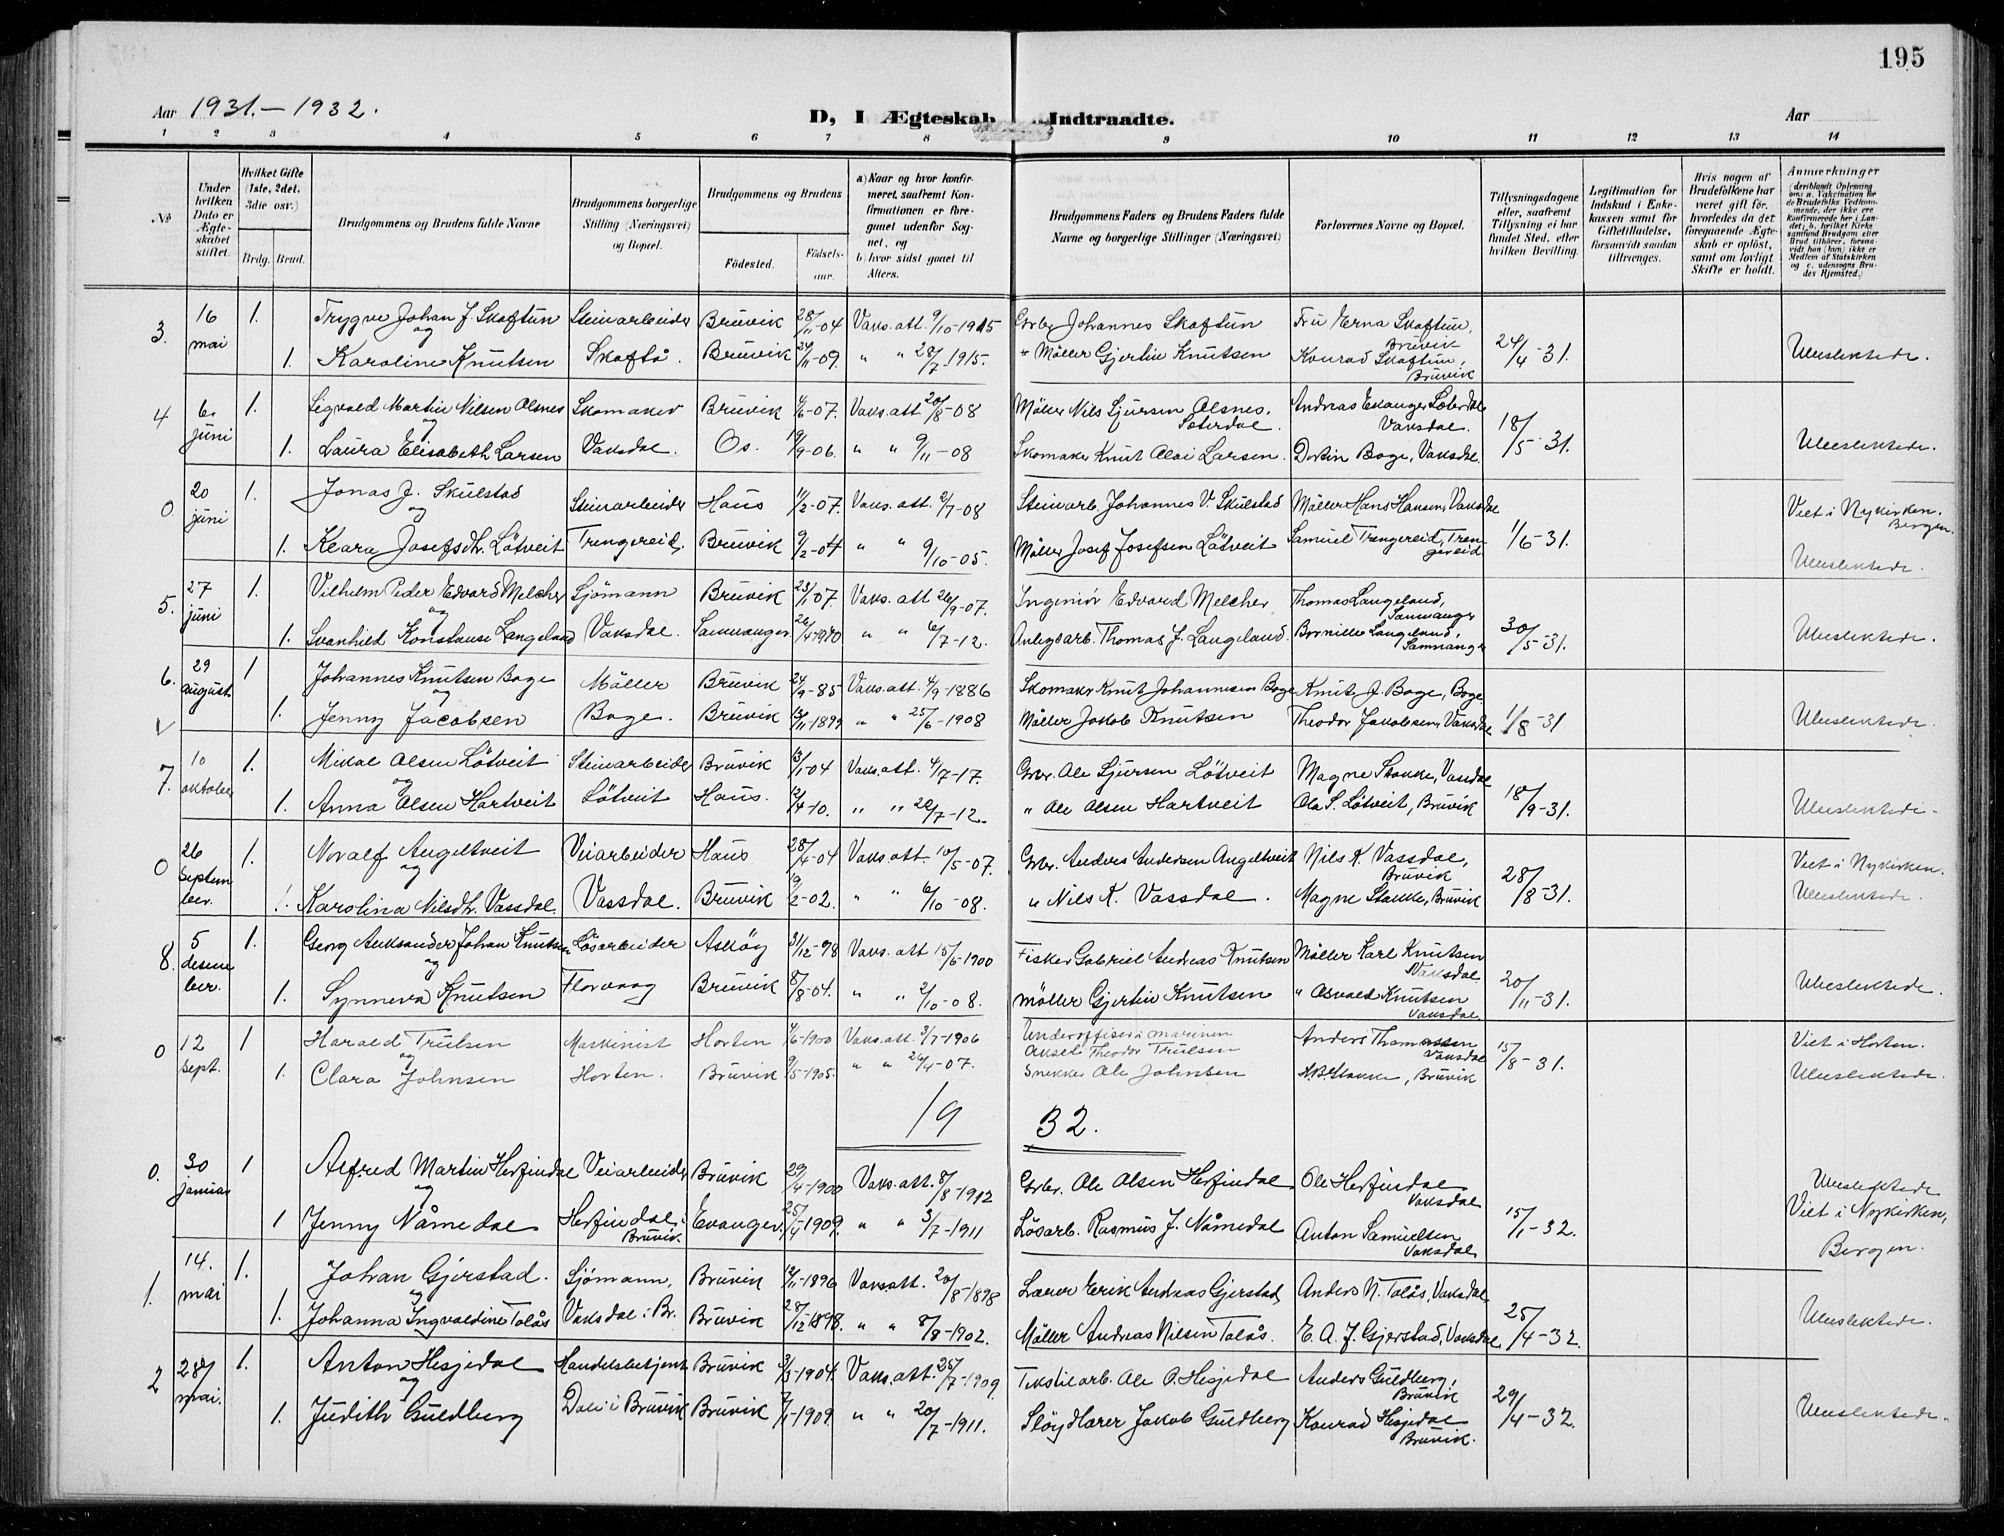 195
Aar 1931.-1932.
D, I Ægteskab Indtraadte.
Aar
1 2 3 4 5 6 7 8 9 10 11 12 13 14
№
Under hvilken Dato er Ægteskabet stiftet.
Hvilket Gifte (1ste, 2det, 3die osv.)
Brdg. Brud.
Brudgommens og Brudens fulde Navne
Brudgommens borgerlige Stilling (Næringsvei) og Bopæl.
Brudgommens og Brudens
Fødested.
Fødselsaar.
a) Naar og hvor konfirmeret, saafremt Konfirmationen er foregaaet udenfor Sognet, og
b) hvor sidst gaaet til Alters.
Brudgommens Faders og Brudens Faders fulde Navne og borgerlige Stillinger (Næringsvei)
Forlovernes Navne og Bopæl.
Tillysningsdagene eller, saafremt Tillysning ei har fundet Sted, efter hvilken Bevilling.
Legitimation for Indskud i Enkekassen samt for Giftetilladelse, forsaavidt saadan tiltrænges.
Hvis nogen af Brudefolkene har været gift før, hvorledes da det foregaaende Ægteskab er opløst, samt om lovligt Skifte er holdt.
Anmærkninger
3. 16 mai 1. Trygve Johan J. Skaftun Steinarbeider Bruvik 28/11-04 Vaks.att. 9/10-1915 Grbr Johannes Skaftun Fru Erna Skaftun, Bruvik 24/4-31.
og
1. Karoline Knutsen Skaftå. Bruvik 24/11-09. " " 28/7-1915. " Möller Gjertin Knutsen Konrad Skaftun, Bruvik Ubeslektede.
4 6. juni 1. Sigvald Martin Nilsen Olsnes Skomaker Bruvik 4/6-07. Vaks.att 20/8-08 Möller Nils Sjursen Olsnes, Sæterdal. Andreas Evanger Sæterdal Vaksdal. 18/5-31.
og
1. Laura Elisabeth Larsen Vaksdal. Os. 19/9-06. " " 9/11-08 Skomaker Knut Olai Larsen. Dortin Boge, Vaksdal. Ubeslektede.
0 20 juni 1. Jonas J. Skulstad Steinarbeider Haus 11/2-07. Vaks.att. 2/7-08 Steinarb. Johannes V. Skulstad Möller Hans Hansen, Vaksdal 1/6-31. Viet i Nykirken. Bergen.
og
1. Klara Josefsdtr. Lötveit Trengereid. Bruvik 9/2-04 " " 9/10-05. Möller Josef Josefsen Lötveit Samuel Trengereid, Trengereid Ubeslektede.
5. 27 juni 1. Vilhelm Peder Edvard Melcher Sjömann Bruvik 23/1-07. Vaks.att 26/9-07. Ingeniör Edvard Melcher Thomas Langeland, Samnanger 30/5-31.
og
1. Svanhild Konstanse Langeland Vaksdal. Samnanger 26/4-1910 " " 6/7-12. Anlegsarb. Thomas J. Langeland. Bornille Langeland, Samnanger Ubeslektede.
6. 29 august 1 Johannes Knutsen Boge Möller Bruvik 24/9-85 Vaks.att. 4/9-1886 Skomaker Knut Johannesen Boge Knut J. Boge, Boge 1/8-31
og
1. Jenny Jacobsen Boge. Bruvik 13/11-1899 " " 25/6-1908 Möller Jakob Knutsen Theodor Jakobsen, Vaksdal Ubeslektede.
7. 10 oktober 1. Mikal Olsen Lötveit Steinarbeider Bruvik 13/1-04 Vaks.att. 4/7-17. Grbr. Ole Sjursen Lötveit Magne Stakke, Vaksdal 18/9-31.
og
1. Anna Olsen Hartveit Lötveit Haus. 12/4-10. " " 22/7-12. " Ole Olsen Hartveit Ola S. Lötveit, Bruvik Ubeslektede.
0 26 september. 1. Noralf Angeltveit Veiarbeider Haus 28/4-04 Vaks.att. 10/5-07. Grbr. Anders Andersen Angeltveit Nils K. Vassdal, Bruvik 28/8-31. Viet i Nykirken.
og
1. Karolina Nilsdtr. Vassdal. Vassdal. Bruvik 19/2-02. " " 6/10-08. " Nils K. Vassdal. Magne Stakke, Bruvik Ubeslektede.
8. 5 desember. 1. Georg Aleksander Johan Knutsen Lösarbeider Asköy 31/12-98 Vaks.att 15/6-1900 Fisker Gabriel Andreas Knutsen Möller Karl Knutsen Vaksdal 20/11-31.
og
1. Synneva Knutsen Florvaag Bruvik 8/8-04. " " 2/10-08. Möller Gjertin Knutsen " Osvald Knutsen Vaksdal. Ubeslektede.
0 12 sept. 1 Harald Trulsen Maskinist Horten 4/6-1900 Vaks.att. 3/7-1906 Underoffiser i marinen Aksel Theodor Trulsen Anders Thomassen Vaksdal 15/8-31. Viet i Horten.
og
1. Clara Johnsen Horten. Bruvik 9/5-1905. " " 26/4-07. Snekker Ole Johnsen H.B. Stakke, Bruvik Ubeslektede.
19 32.
0. 30 januar 1 Alfred Martin Herfindal Veiarbeider Bruvik 29/4-1900 Vaks.att. 8/8-1912 Grbr. Ole Olsen Herfindal Ole Herfindal Vaksdal 15/1-32. Ubeslektede
og
1 Jenny Nåmedal Herfindal i Bruvik. Evanger. 25/4-1909. " " 3/7-1911 Lösarb. Rasmus J. Nåmedal Anton Samuelsen Vaksdal Viet i Nykirken, Bergen.
1. 14. mai 1. Johan Gjerstad. Sjömann, Bruvik 12/11-1896 Vaks.att. 20/8-1898 Lærer Erik Andreas Gjerstad Anders N. Tolås, Vaksdal 25/4-32.
og
1. Johanna Ingvaldine Tolås Vaksdal i Br. Bruvik 28/12-1898. " " 8/8-1902. Möller Andreas Nilsen Tolås. E. A. J. Gjerstad, Vaksdal Ubeslektede.
2 28/ mai. 1. Anton Hesjedal Handelsbetjent Bruvik 3/3-1904. Vaks.att. 25/7-1909. Tekstilarb. Ole O. Hesjedal Anders Guldberg, Bruvik 29/4-32.
og
1. Judith Guldberg Dale i Bruvik Bruvik 7/1-1909. " " 20/7-1911. Slöydlærer Jakob Guldberg Konrad Hesjedal Bruvik. Ubeslektede.